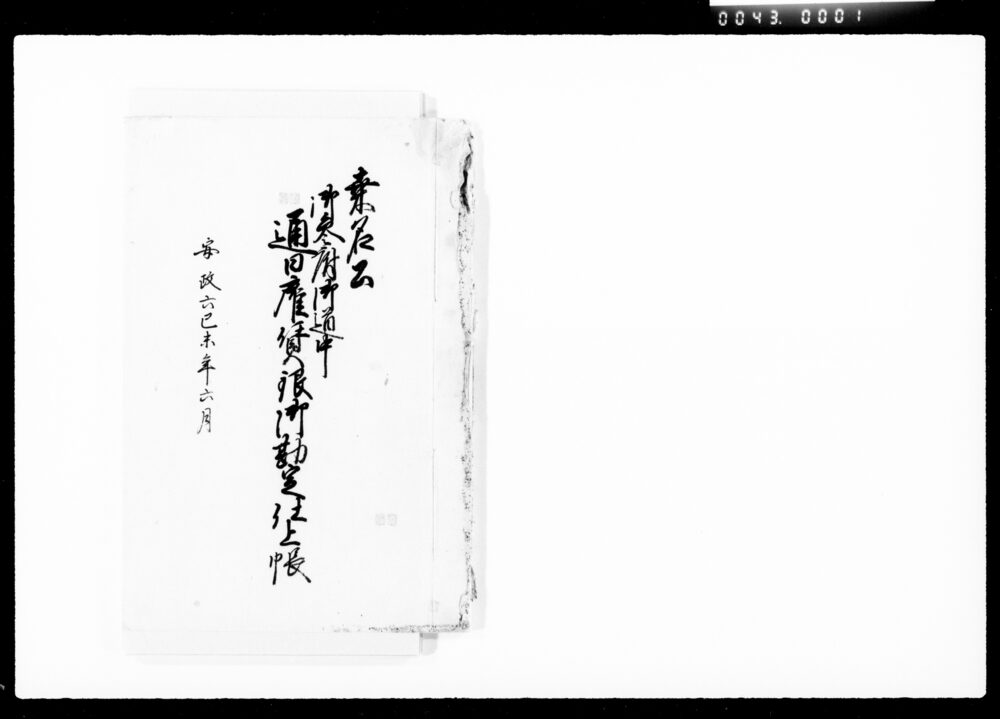 0043. 0001
桑名公
御参府御道中
通日雇賃銀御勘定仕上帳
安政六己未年六月